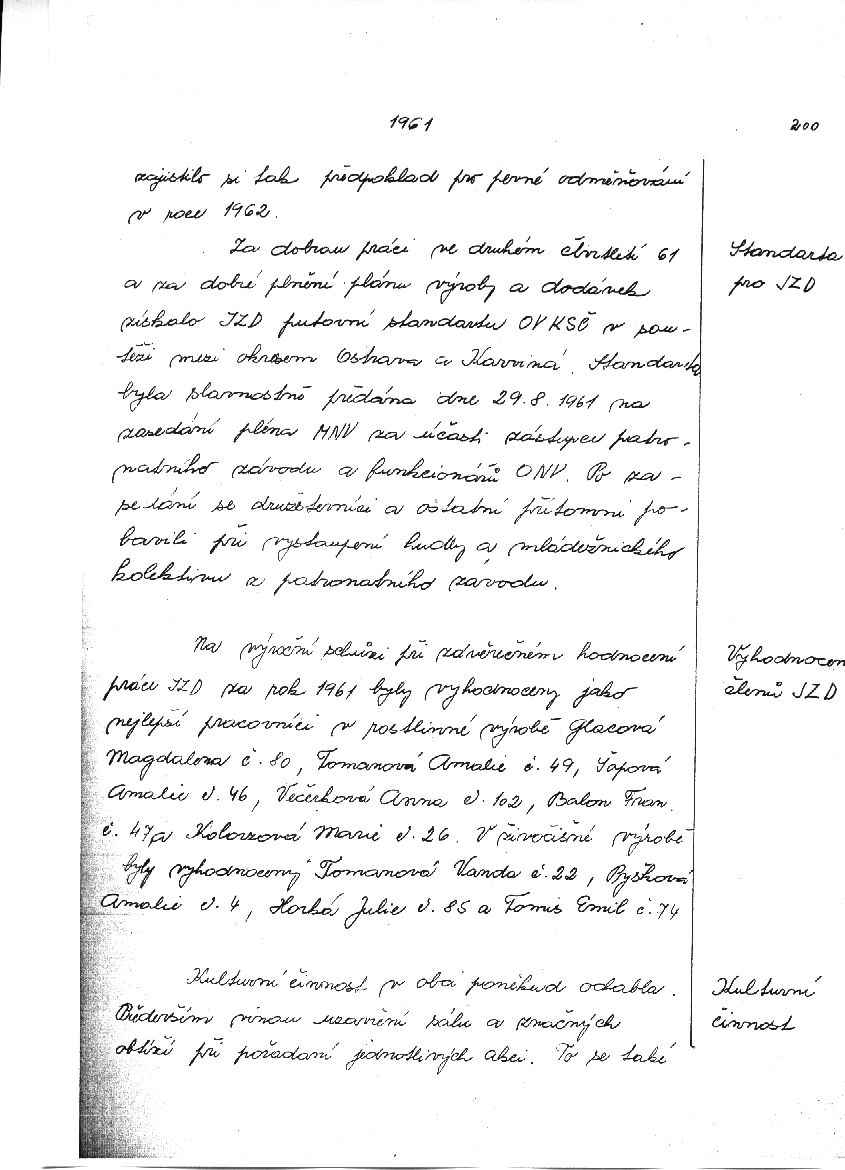 1961
200
zajistilo si tak předpoklad pro pevné odměňování
v roce 1962.
Za dobrou práci ve druhém čtvrtletí 61
Standarta
a za dobré plnění plánu výroby a dodávek
pro JZD
získalo JZD putovní standartu OV KSČ v sou-
těži mezi okresem Ostrava a Karviná. Standarta
byla slavnostně předána dne 29.8.1961 na
zasedání pléna MNV za účasti zástupců patro-
natního závodu a funkcionářů ONV. Po za-
sedání se družstevníci a ostatní přítomní po-
bavili při vystoupení hudby a mládežnického
kolektivu z patronatního závodu.
Na výroční schůzi při závěrečném hodnocení
Vyhodnocen
práce JZD za rok 1961 byly vyhodnoceny jako
členů JZD
nejlepší pracovníci v rostlinné výrobě Glacová
Magdalena č. 80, Tomanová Amalie č. 49, Šapová
Amalie č. 46, Večerková Anna č. 102, Balon Fran.
č. 47 a Kolorzová Marie č. 26. V živočišné výrobě
byly vyhodnoceny Tomanová Vanda č. 22, Ryšková
Amalie č. 4, Horká Julie č. 85 a Tomis Emil č. 74
Kulturní činnost v obci poněkud ochabla.
Kulturní
Především vinou uzavření sálu a značných
činnost
obtíží při pořádaní jednotlivých akcí. To se také